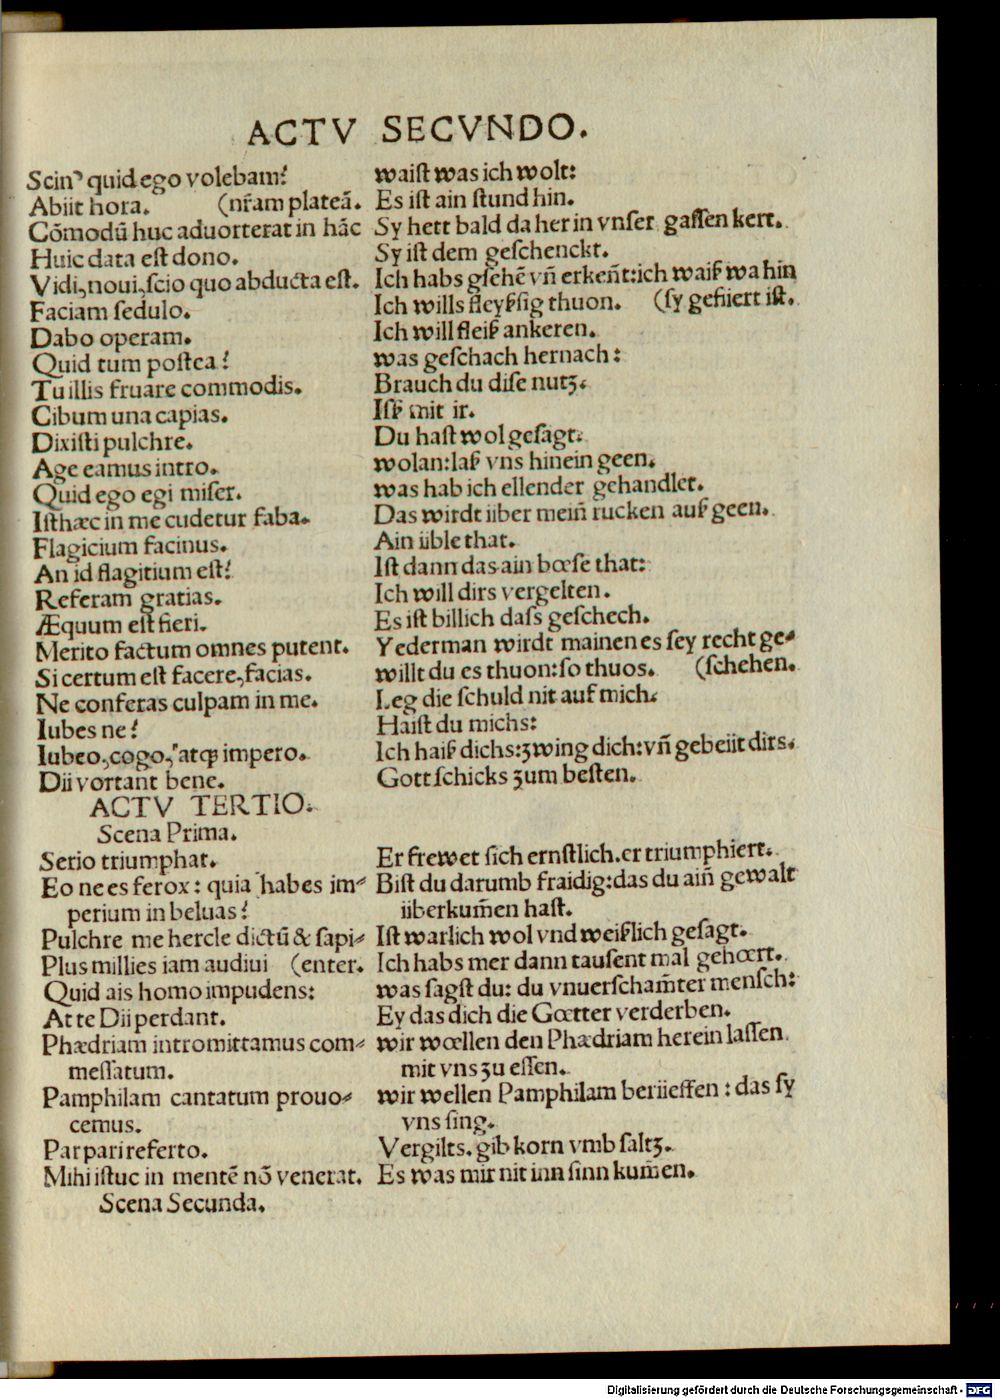 ACTV SECVNDO.
Scin' quid ego volebam? waiſt was ich wolt:
Abiit hora. (nr̃am plateã. Es iſt ain ſtund hin.
Cõmodũ huc aduorterat in hãc Sy hett bald da her in vnſer gaſſen kert.
Huic data eſt dono. Sy iſt dem geſchenckt.
Vidi, noui, ſcio quo abducta eſt. Ich habs gſehẽ vñ erkeñt: ich waiß wa hin
Faciam ſedulo. Ich wills fleyßſig thuon. (ſy gefüert iſt.
Dabo operam. Ich will fleiß ankeren.
Quid tum poſtea? was geſchach hernach:
Tu illis fruare commodis. Brauch du diſe nutz.
Cibum una capias. Iſß mit ir.
Dixiſti pulchre. Du haſt wol geſagt.
Age eamus intro. wolan: laß vns hinein geen.
Quid ego egi miſer. was hab ich ellender gehandlet.
Iſthæc in me cudetur faba. Das wirdt über meiñ rucken auß geen.
Flagicium facinus. Ain üble that.
An id flagitium eſt? Iſt dann das ain bœſe that:
Referam gratias. Ich will dirs vergelten.
Æquum eſt fieri. Es iſt billich daſs geſchech.
Merito factum omnes putent. Yederman wirdt mainen es ſey recht ge⸗
Si certum eſt facere, facias. willt du es thuon: ſo thuos. (ſchehen.
Ne conferas culpam in me. Leg die ſchuld nit auf mich.
Iubes ne? Haiſt du michs:
Iubeo, cogo, atq; impero. Ich haiß dichs: zwing dich: vñ gebeüt dirs.
Dii vortant bene. Gott ſchicks zum beſten.
ACTV TERTIO.
Scena Prima.
Serio triumphat. Er frewet ſich ernſtlich. er triumphiert.
Eo ne es ferox: quia habes im⸗ Biſt du darumb fraidig: das du aiñ gewalt
perium in beluas? überkum̃en haſt.
Pulchre me hercle dictũ & ſapi⸗ Iſt warlich wol vnd weißlich geſagt.
Plus millies iam audiui (enter. Ich habs mer dann tauſent mal gehœrt.
Quid ais homo impudens: was ſagſt du: du vnuerſcham̃ter menſch:
At te Dii perdant. Ey das dich die Gœtter verderben.
Phædriam intromittamus com⸗ wir wœllen den Phædriam herein laſſen
meſſatum. mit vns zu eſſen.
Pamphilam cantatum prouo⸗ wir wellen Pamphilam berüeffen: das ſy
cemus. vns ſing.
Par pari referto. Vergilts. gib korn vmb ſaltz.
Mihi iſtuc in mentẽ nõ venerat. Es was mir nit inn ſinn kum̃en.
Scena Secunda.
Digitalisierung gefördert durch die Deutsche Forschungsgemeinschaft - DFG